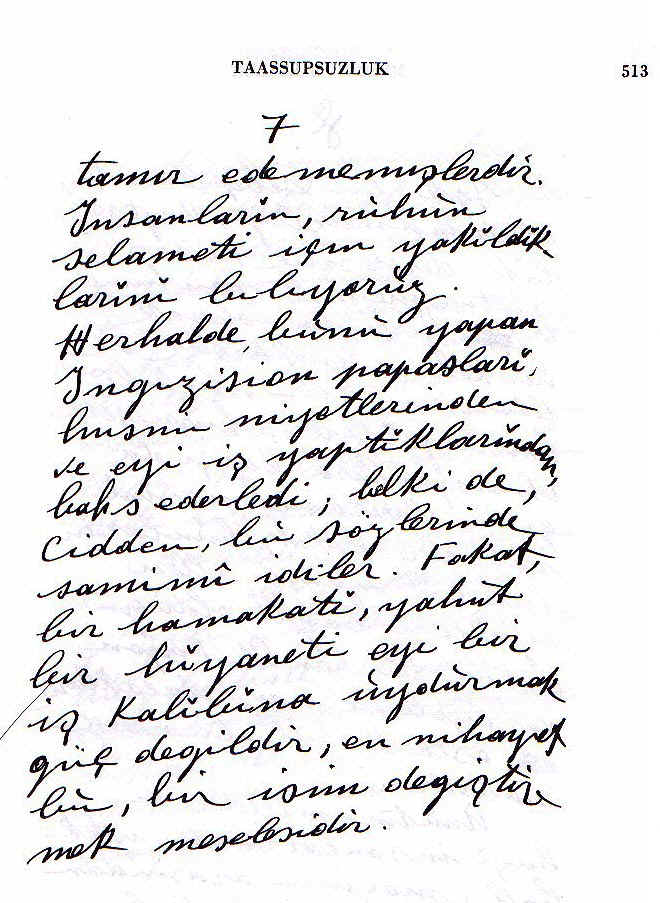 TAASSUPSUZLUK 513
7
tamır edememışlerdir.
Insanların, rühün
selameti içın yakıldık
larını buluyorüz.
Herhalde, bünü yapan
Inguızision papasları,
husnü niyetlerinden
ve eyi iş yaptıklarından,
bahs ederledi; belki de,
cidden, bü sözlerinde
samimî idiler. Fakat,
bir hamakati, yahut
bir hıyaneti eyi bir
iş kalıbına üydürmak
güç degildir, en nihayet
bü, bir isim degiştir
mek meselesidir.